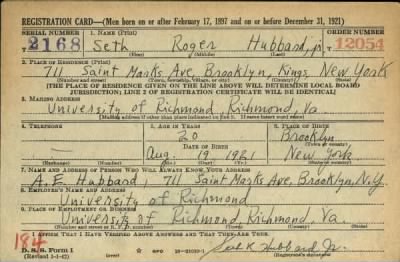 REGISTRATION CARD—(Men born on or after February 17, 1897 and on or before December 31, 1921)
SERIAL NUMBER 1. NAME (Print) ORDER NUMBER
T 2168 Seth Roger Hubbard, jr. 12054
(First) (Middle) (Last)
2. PLACE OF RESIDENCE (Print)
711 Saint Marks Ave, Brooklyn, Kings, New York
(Number and street) (Town, township, village, or city) (County) (State)
[THE PLACE OF RESIDENCE GIVEN ON THE LINE ABOVE WILL DETERMINE LOCAL BOARD
JURISDICTION; LINE 2 OF REGISTRATION CERTIFICATE WILL BE IDENTICAL]
3. MAILING ADDRESS
University of Richmond Richmond, Va.
[Mailing address if other than place indicated on line 2. If same insert word same]
4. TELEPHONE 5. AGE IN YEARS 6. PLACE OF BIRTH
— 20 Brooklyn
DATE OF BIRTH (Town or county)
Aug. 19 1921 New York
(Exchange) (Number) (Mo.) (Day) (Yr.) (State or country)
7. NAME AND ADDRESS OF PERSON WHO WILL ALWAYS KNOW YOUR ADDRESS
A. E. Hubbard, 711 Saint Marks Ave, Brooklyn, N.Y.
8. EMPLOYER'S NAME AND ADDRESS
University of Richmond
9. PLACE OF EMPLOYMENT OR BUSINESS
University of Richmond, Richmond, Va.
(Number and street or R. F. D. number) (Town) (County) (State)
I AFFIRM THAT I HAVE VERIFIED ABOVE ANSWERS AND THAT THEY ARE TRUE.
184
D. S. S. Form 1 GPO 16—21630-1 Seth R. Hubbard Jr.
(Revised 1-1-42) (Registrant's signature)